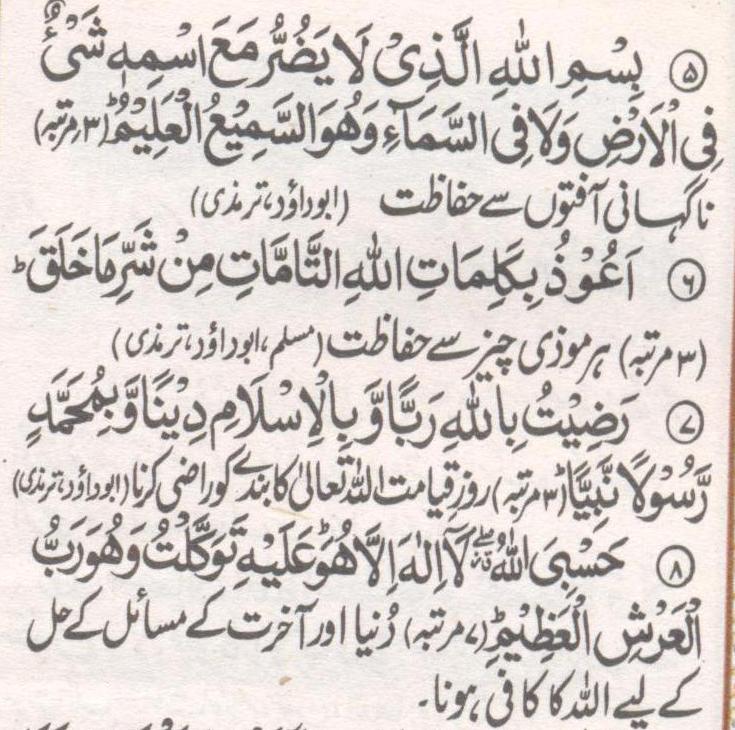 ۵ بِسْمِ اللهِ الَّذِىْ لَا يَضُرُّ مَعَ اسْمِهٖ شَىْءٌ
فِى الْاَرْضِ وَلَا فِى السَّمَآءِ وَهُوَ السَّمِيْعُ الْعَلِيْمُ ؕ (۳ مرتبہ)
ناگہانی آفتوں سے حفاظت (ابوداؤد، ترمذی)
۶ اَعُوْذُ بِكَلِمَاتِ اللهِ التَّامَّاتِ مِنْ شَرِّ مَا خَلَقَ ؕ
(۳ مرتبہ) ہر موذی چیز سے حفاظت (مسلم، ابوداؤد، ترمذی)
۷ رَضِيْتُ بِاللهِ رَبًّا وَّ بِالْاِسْلَامِ دِيْنًا وَّ بِمُحَمَّدٍ
رَّسُوْلًا نَّبِيًّا ؕ (۳ مرتبہ) روزِ قیامت اللہ تعالیٰ کا بندے کو راضی کرنا (ابوداؤد، ترمذی)
۸ حَسْبِىَ اللهُ لَآ اِلٰهَ اِلَّا هُوَ ؕ عَلَيْهِ تَوَكَّلْتُ وَهُوَ رَبُّ
الْعَرْشِ الْعَظِيْمِ ؕ (۷ مرتبہ) دُنیا اور آخرت کے مسائل کے حل
کے لیے اللہ کا کافی ہونا۔